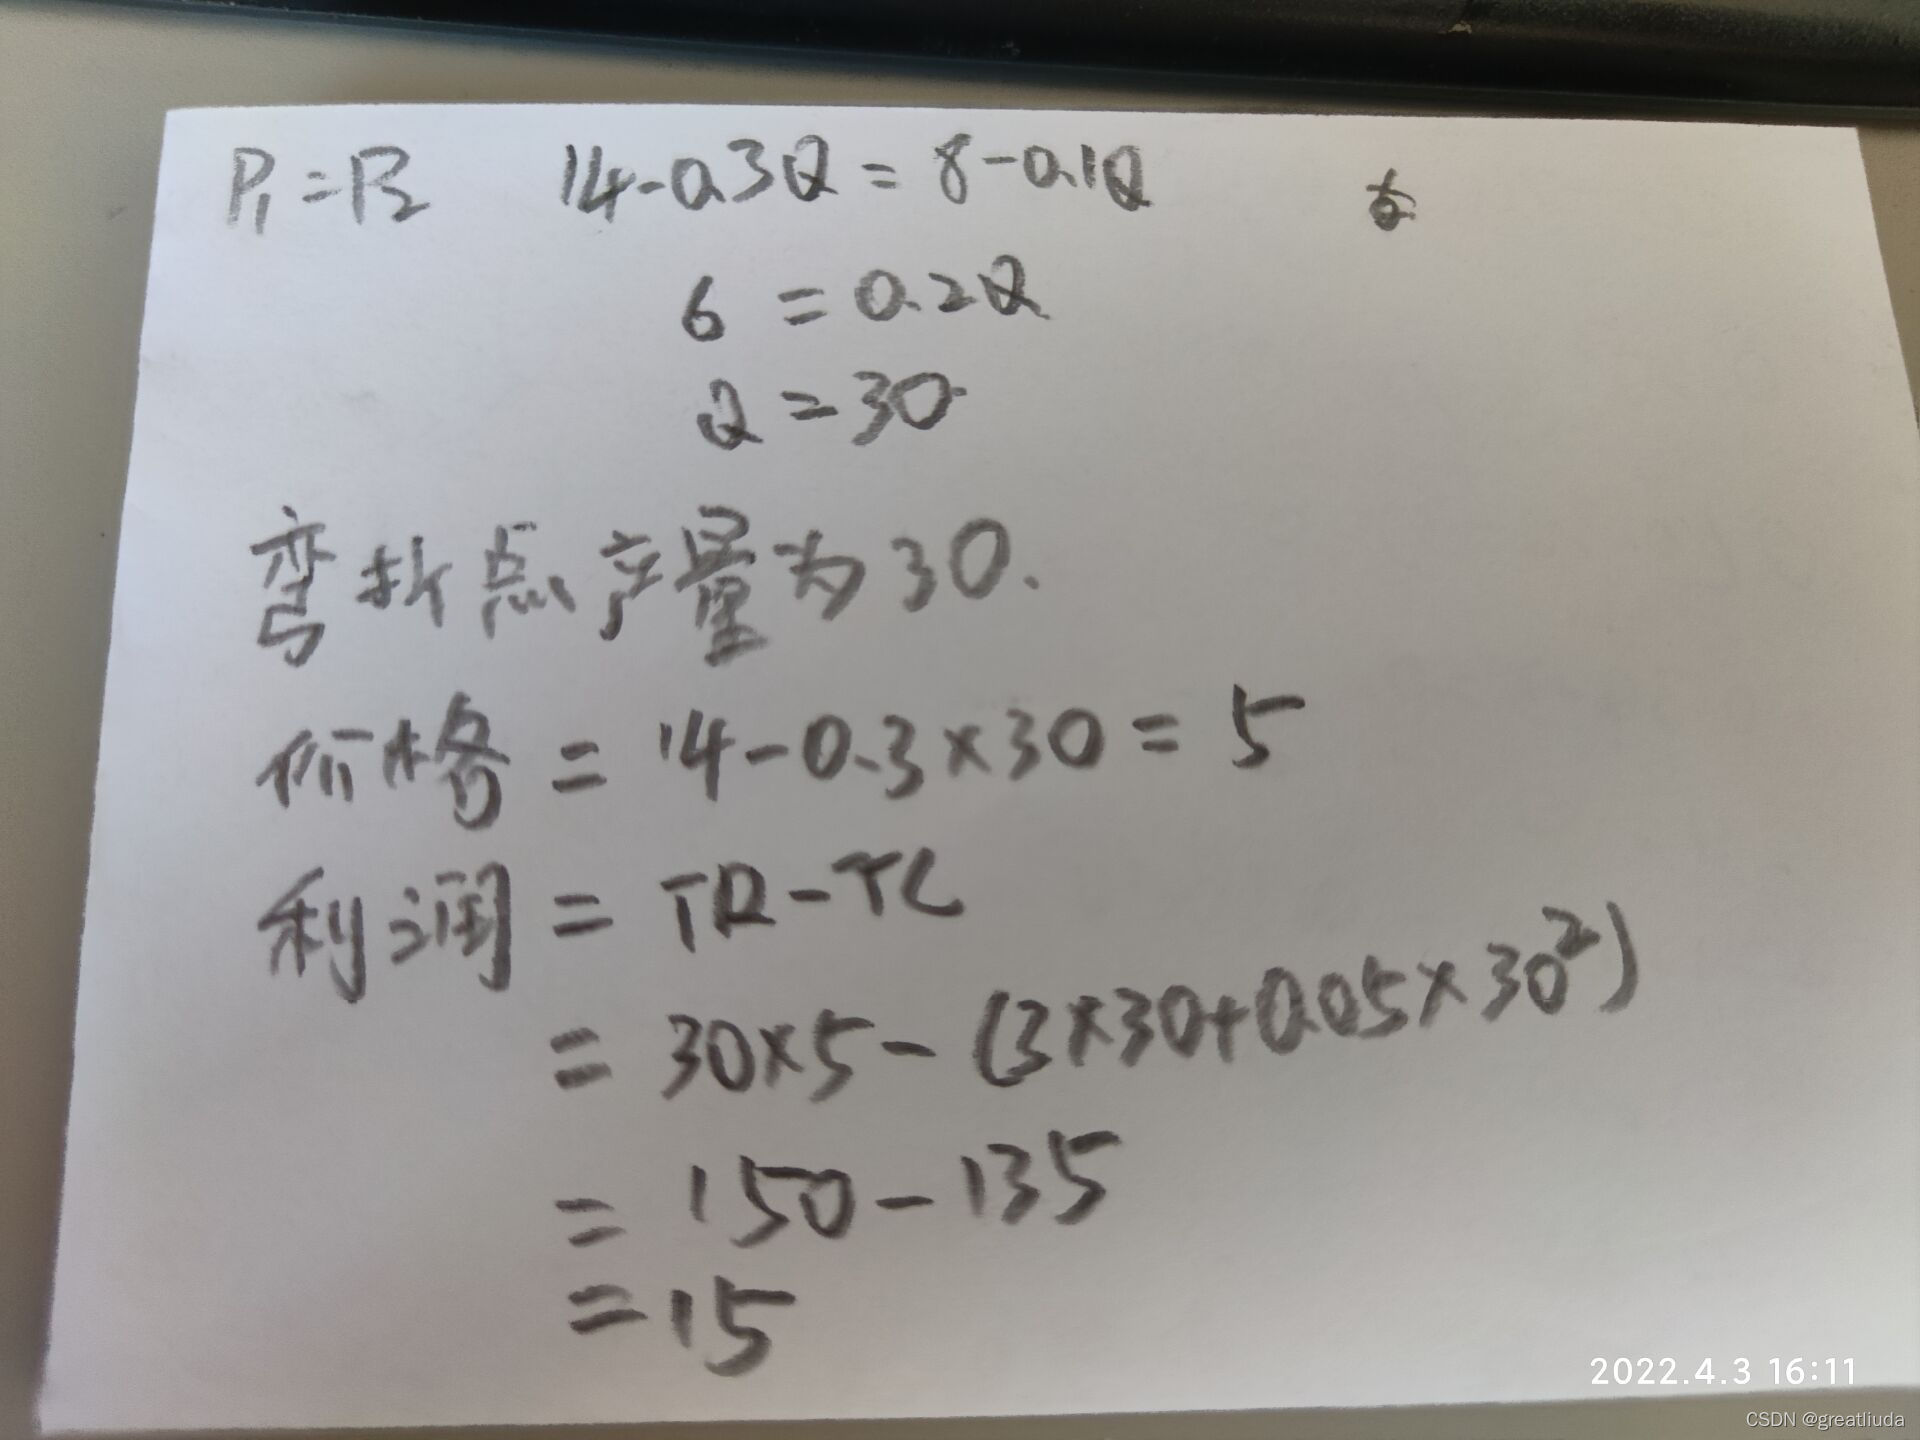 P₁=P₂ 14-0.3Q = 8-0.1Q
6 = 0.2Q
Q = 30
弯折点产量为30.
价格 = 14-0.3×30 = 5
利润 = TR-TC
= 30×5-(3×30+0.05×30²)
= 150-135
= 15
2022.4.3 16:11
CSDN @greatliuda